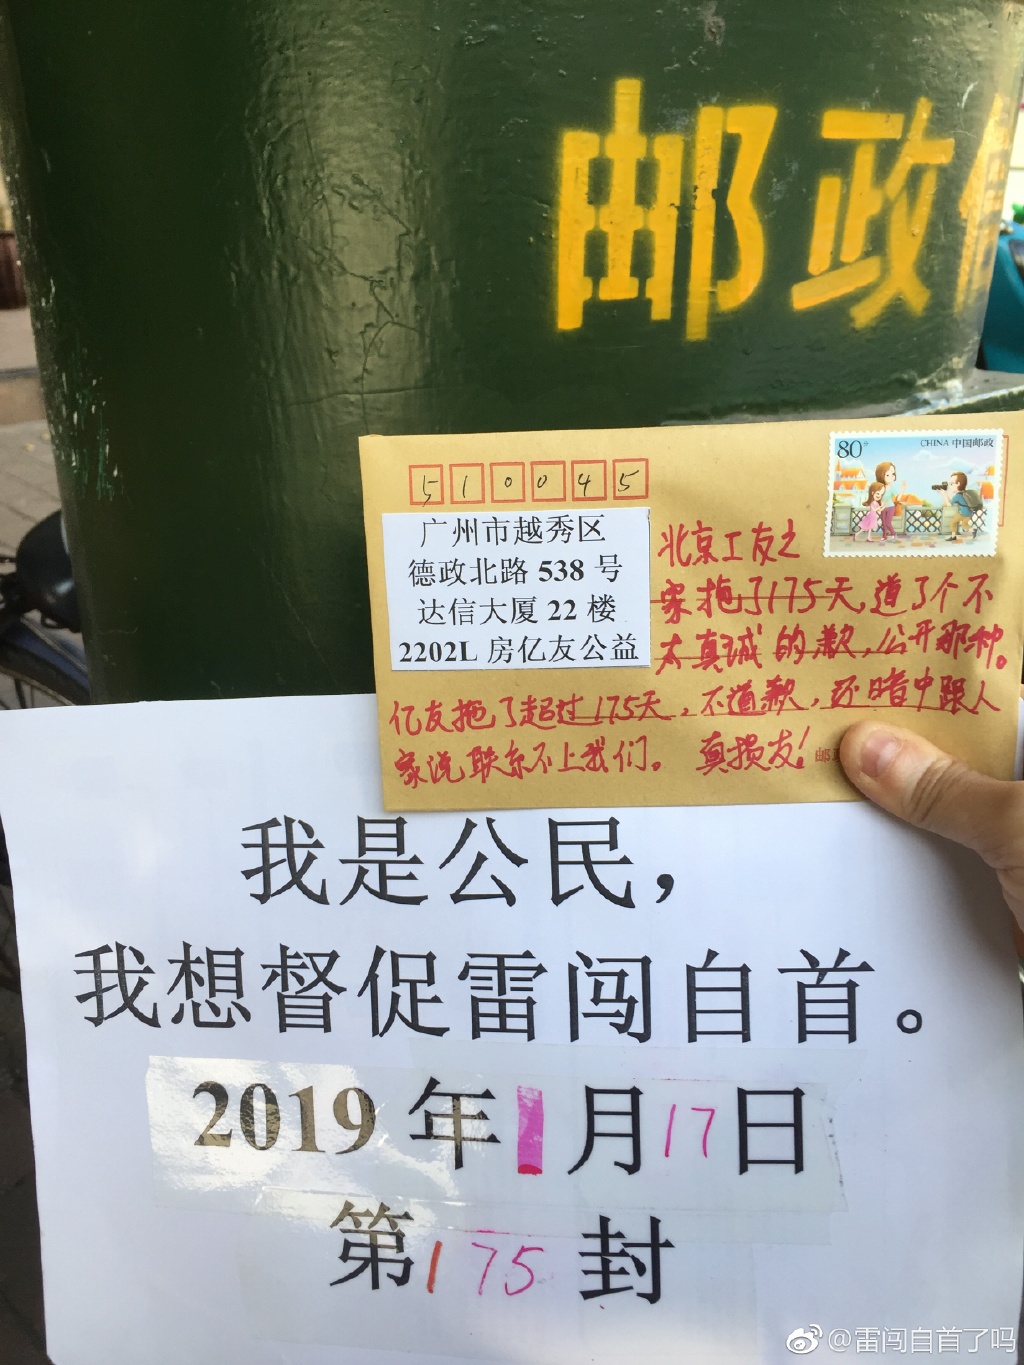 邮政
510045
80分
CHINA 中国邮政
广州市越秀区
德政北路 538 号
达信大厦 22 楼
2202L 房亿友公益
北京工友之
家拖了175天,道了个不
太真诚的歉,公开那种。
亿友拖了超过175天,不道歉,还暗中跟人
家说联系不上我们。 真损友!
邮
我是公民,
我想督促雷闯自首。
2019 年 1 月 17 日
第 175 封
@雷闯自首了吗